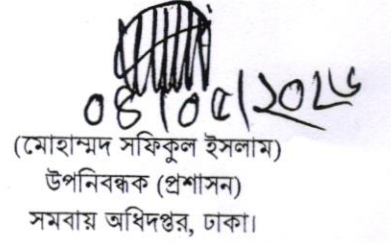 ০৪/০৫/২০২৬
(মোহাম্মদ সফিকুল ইসলাম)
উপনিবন্ধক (প্রশাসন)
সমবায় অধিদপ্তর, ঢাকা।